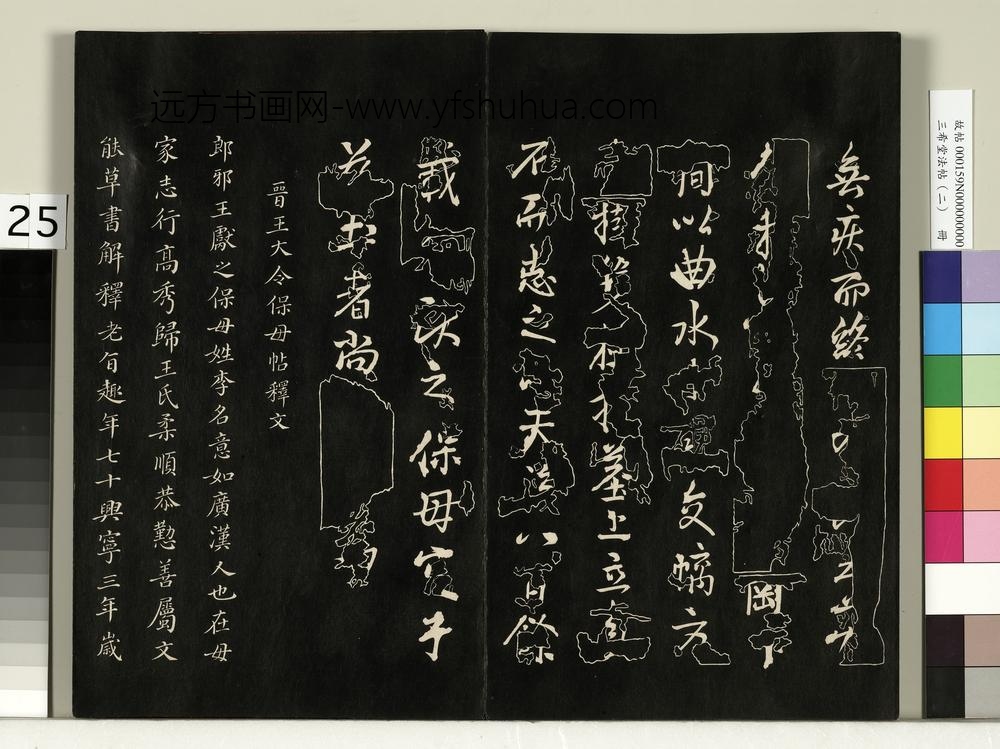 远方书画网-www.yfshuhua.com
無疾而終
岡下
以曲水 交螭方
墓上立貞
石而志之 夫 八百餘
載 獻之保母宮于
茲土者尚
晉王大令保母帖釋文
郎邪王獻之保母姓李名意如廣漢人也在母
家志行高秀歸王氏柔順恭懃善屬文
能草書解釋老旨趣年七十興寧三年歲
25
故帖 000159N000000000
三希堂法帖（二） 冊